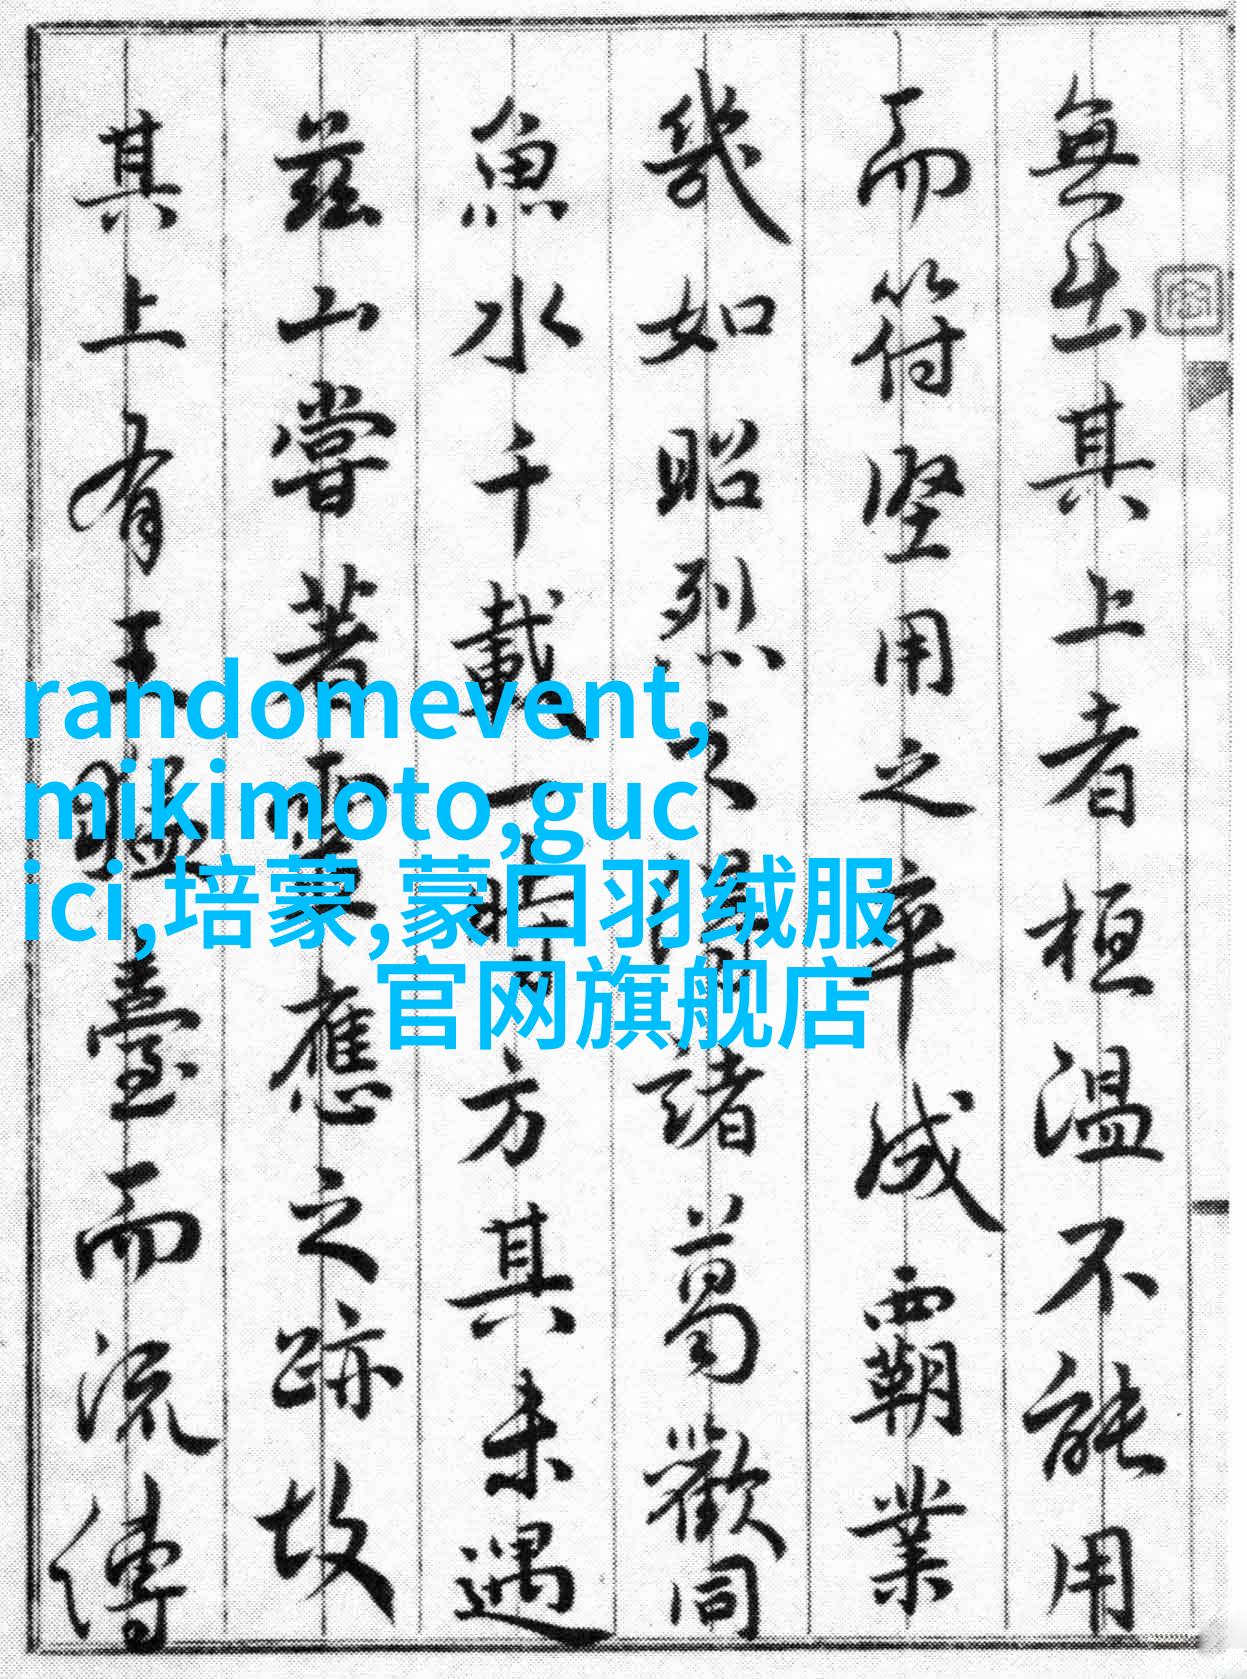 無出其上者桓温不能用
而符堅用之卒成霸業
幾如昭烈之得諸葛歡同
魚水千載一時方其未遇
茲山嘗著靈應之跡故
其上有王猛臺而流傳
randomevent,
mikimoto,guc
ici,培蒙,蒙口羽绒服
官网旗舰店